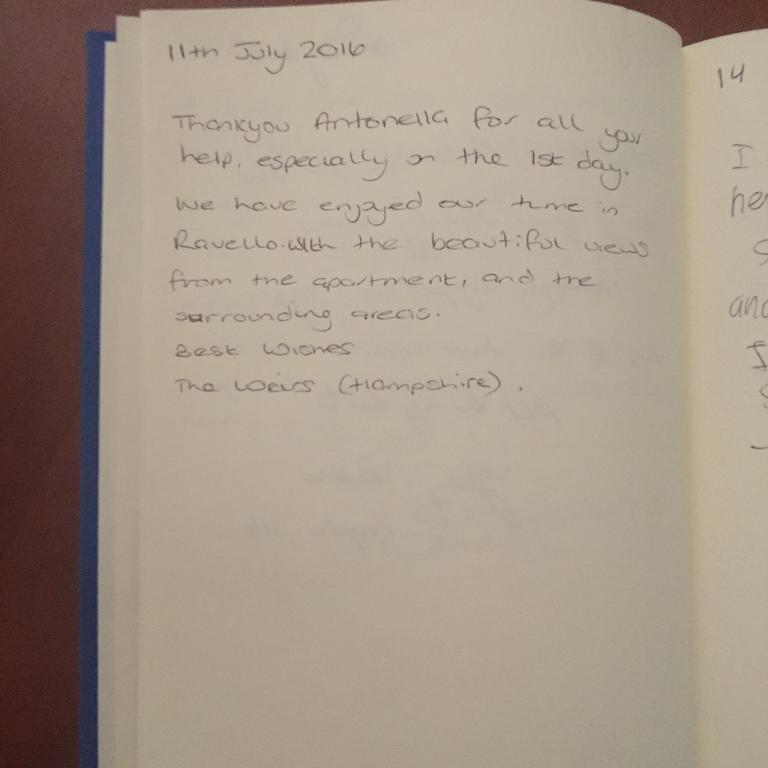 11th July 2016
Thankyou Antonella for all your
help, especially on the 1st day.
We have enjoyed our time in
Ravello.with the beautiful views
from the apartment, and the
surrounding areas.
Best Wishes
The Weirs (Hampshire).
14
I
he
and